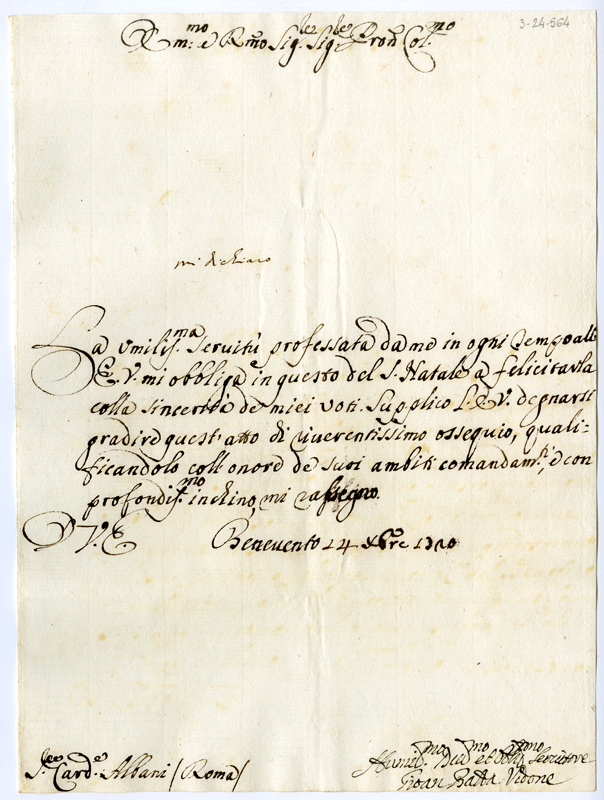 3-24-564
Em:mo e Rmo Sig.re Sig.re Pron Col.mo
mi dichiaro
La umilis.ma servitù professata da me in ogni tempo all
E.V. mi obbliga in questo del S. Natale a felicitarla
colla sincerità de miei voti. Supplico L.E.V. degnarsi
gradire quest'atto di riverentissimo ossequio, quali=
ficandolo coll onore de suoi ambiti comandam.ti, e con
profondis.mo inchino, mi rassegno.
D V.E Benevento 14 Xbre 1720
S.re Card.e Albani (Roma)
Humil.mo Div.mo et Obb.mo Servitore
Gioan Batta Vidone